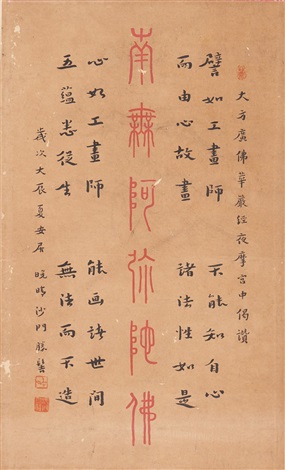 大方廣佛華嚴經夜摩宮中偈讚
譬如工畫師　不能知自心
而由心故畫　諸法性如是
南無阿弥陀佛
心如工畫師　能画諸世間
五蘊悉從生　無法而不造
歲次大辰夏安居　晚晴沙門勝髻